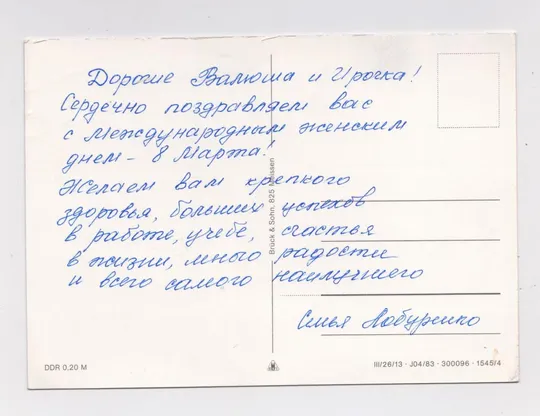 Дорогие Валюша и Ирочка!
Сердечно поздравляем вас
с международным женским
днем - 8 Марта!
Желаем вам крепкого
здоровья, больших успехов
в работе, учебе, счастья
в жизни, много радости
и всего самого наилучшего
Семья Лобуренко
Brück & Sohn, 825 Meissen
DDR 0,20 M
III/26/13 · J04/83 · 300096 · 1545/4